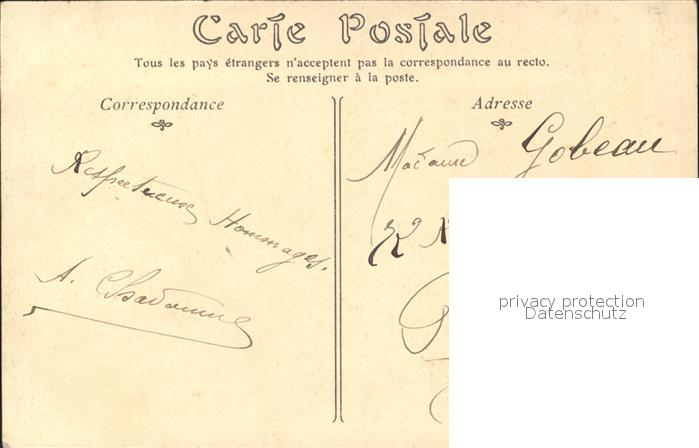 Carte Postale
Tous les pays étrangers n'acceptent pas la correspondance au recto.
Se renseigner à la poste.
Correspondance
Respectueux Hommages.
A.
Adresse
Madame Gobeau
privacy protection
Datenschutz